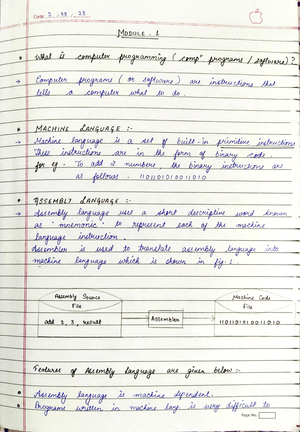 Date 2, 08, 23
MODULE - 1
• What is computer programming (comp" programs / software)?
→ Computer programs (or software) are instructions that
tells a computer what to do.
• MACHINE LANGUAGE :-
→ Machine language is a set of built-in primitive instructions
These instructions are in the form of binary code.
for eg - To add 2 numbers, the binary instructions are
as follows - 1101101010011010
• ASSEMBLY LANGUAGE :-
→ Assembly language uses a short descriptive word known
as - mnemonic - to represent each of the machine
language instruction.
Assembler is used to translate assembly language into
machine language which is shown in fig-1.
Assembly Source
File
add 2, 3, result
Assembler
Machine Code
File
1101101010011010
Features of Assembly language are given below :-
• Assembly language is machine dependent.
• Programs written in machine lang. is very difficult to
Page No.